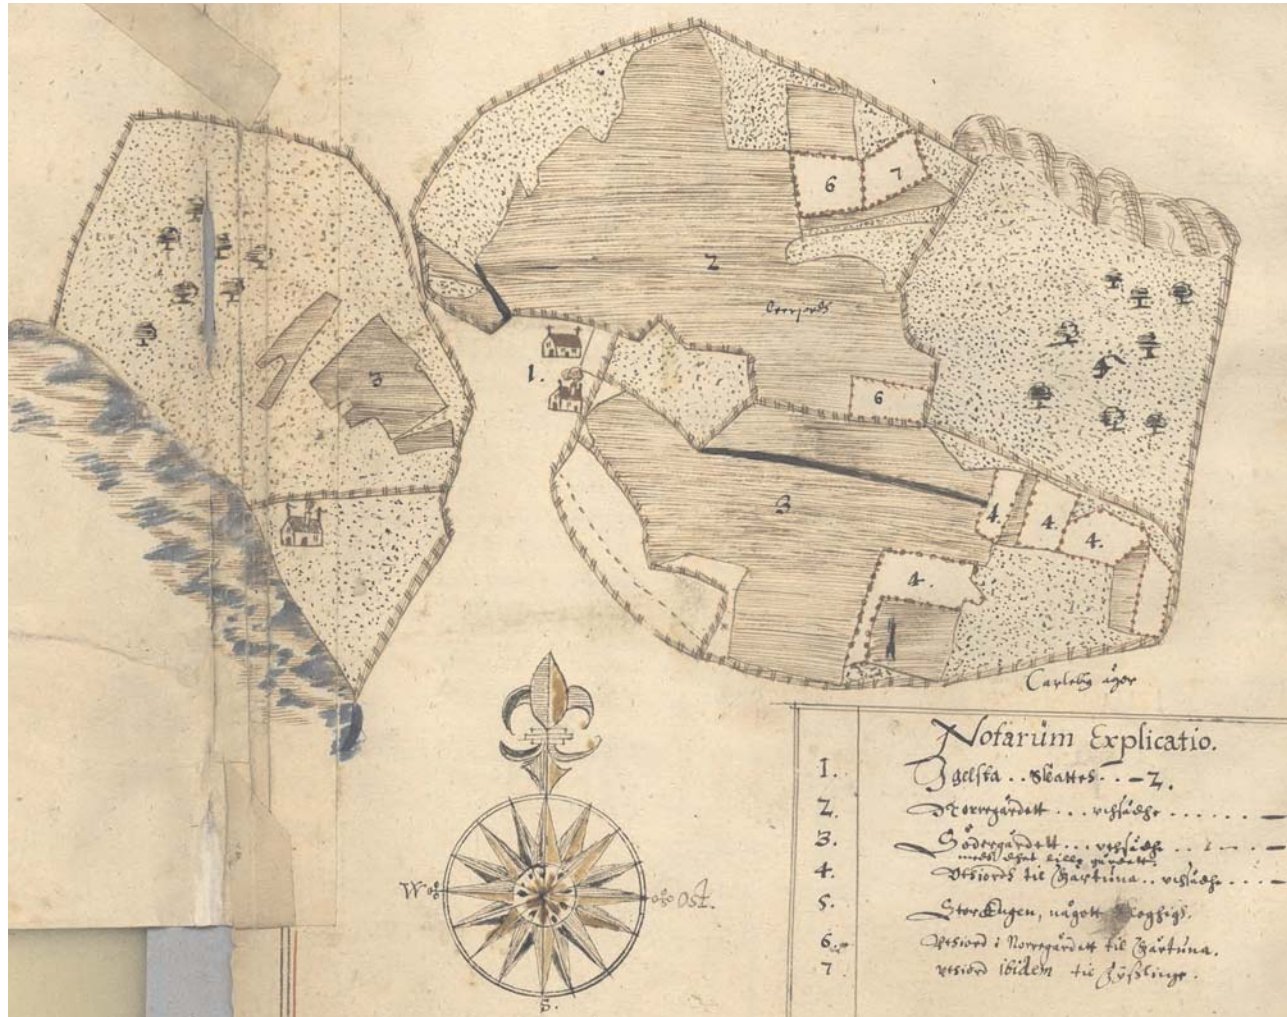 6
7
2
leerjordh
1.
3
6
3
4.
4.
4.
4.
Carleby ägor
W
Ost.
S.
Notarum Explicatio.
1. Igelsta .. Skattes .. — 2.
2. Norregärdett ... uthsädhe ...... —
3. Södergärdett ... uthsädhe .. . — —
medh dhet lille gärdett.
4. Uthiordh til Gärtuna .. uthsädhe ... —
5. StorEngen, någott skoghigh.
6. Uthiord i Norregärdett til Gärtuna.
7 uthiord ibidem til